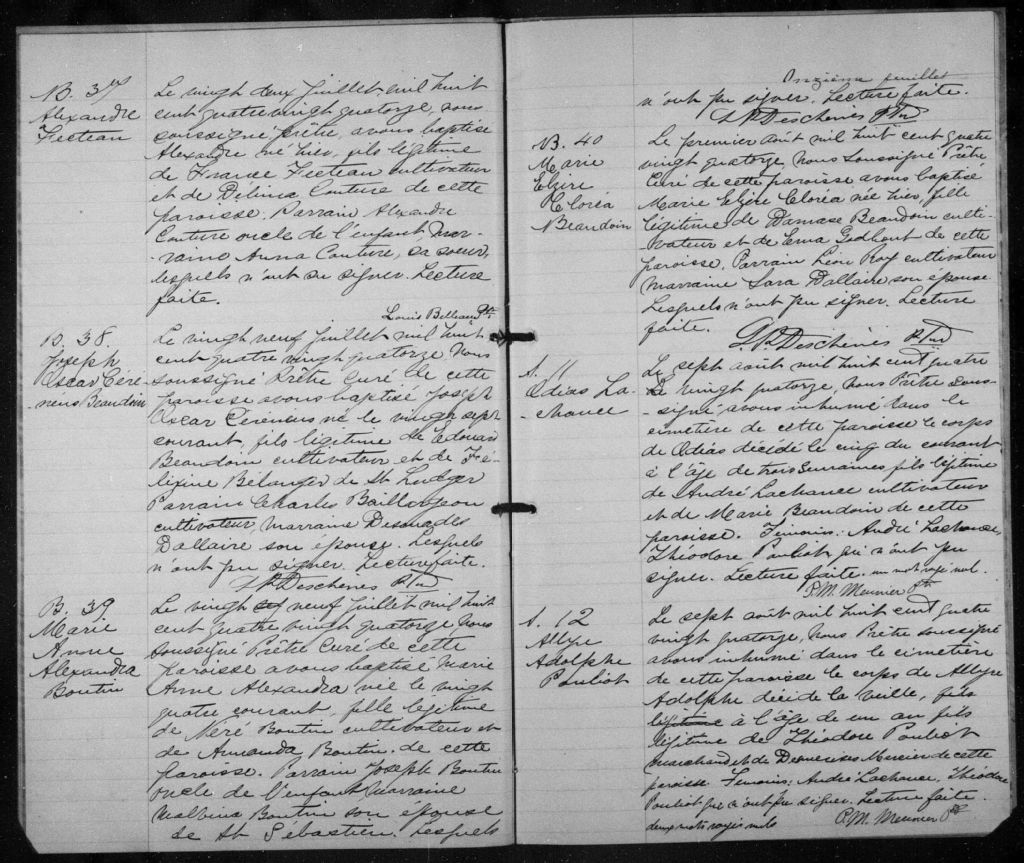 B. 37
Alexandre
Fecteau
Le vingt deux Juillet mil huit
cent quatre vingt quatorze, nous
soussigné prêtre, avons baptisé
Alexandre né hier, fils légitime
de France Fecteau cultivateur
et de Délima Couture de cette
paroisse. Parrain Alexandre
Couture oncle de l'enfant mar-
raine Anna Couture, sa soeur,
lesquels n'ont su signer. Lecture
faite.
Louis Billeau Ptre
B. 38.
Joseph
Oscar Céré-
néus Beaudoin
Le vingt neuf Juillet mil huit
cent quatre vingt quatorze Nous
soussigné Prêtre Curé de cette
paroisse avons baptisé Joseph
Oscar né le vingt sept
courant, fils légitime de Edouard
Beaudoin cultivateur et de Fé-
lixine Bélanger de St Ludger
Parrain Charles Baillorgeon
cultivateur, marraine Desneiges
Dallaire son épouse. Lesquels
n'ont pu signer. Lecture faite.
Deschenes Ptre
B. 39
Marie
Anne
Alexandra
Boutin
Le vingt neuf Juillet mil huit
cent quatre vingt quatorze Nous
soussigné Prêtre Curé de cette
paroisse avons baptisé Marie
Anne Alexandra née le vingt
quatre courant, fille légitime
de Néré Boutin cultivateur et
de Amanda Boutin de cette
paroisse. Parrain Joseph Boutin
oncle de l'enfant Marraine
Malvina Boutin son épouse
de St Sébastien, Lesquels
Onzième feuillet
n'ont pu signer. Lecture faite.
Deschenes Ptre
B. 40
Marie
Elzire
Cloréa
Beaudoin
Le premier août mil huit cent quatre
vingt quatorze Nous Soussigné Prêtre
Curé de cette paroisse avons baptisé
Marie Elzire Cloréa née hier, fille
légitime de Damase Beaudoin culti-
vateur et de Ema Godbout de cette
paroisse. Parrain Léon Roy cultivateur
marraine Sara Dallaire son épouse
Lesquels n'ont pu signer. Lecture
faite.
Deschênes Ptre
S. 11
Odias La-
chance
Le sept août mil huit cent quatre
vingt quatorze, Nous Prêtre sous-
signé avons inhumé dans le
cimetière de cette paroisse le corps
de Odias décédé le cinq du courant
à l'âge de trois semaines fils légitime
de André Lachance cultivateur
et de Marie Beaudoin de cette
paroisse. Témoins: André Lachance,
Théodore Pouliot qui n'ont pu
signer. Lecture faite. un mot rayé nul.
P.M. Meunier Ptre
S. 12
Adolphe
Pouliot
Le sept août mil huit cent quatre
vingt quatorze, Nous Prêtre soussigné
avons inhumé dans le cimetière
de cette paroisse le corps de
Adolphe décédé la veille, fils
légitime à l'âge de un an fils
légitime de Théodore Pouliot
marchand et de Desneiges Mercier de cette
paroisse Témoins: André Lachance, Théodore
Pouliot qui n'ont pu signer. Lecture faite.
deux mots rayés nuls
P.M. Meunier Ptre